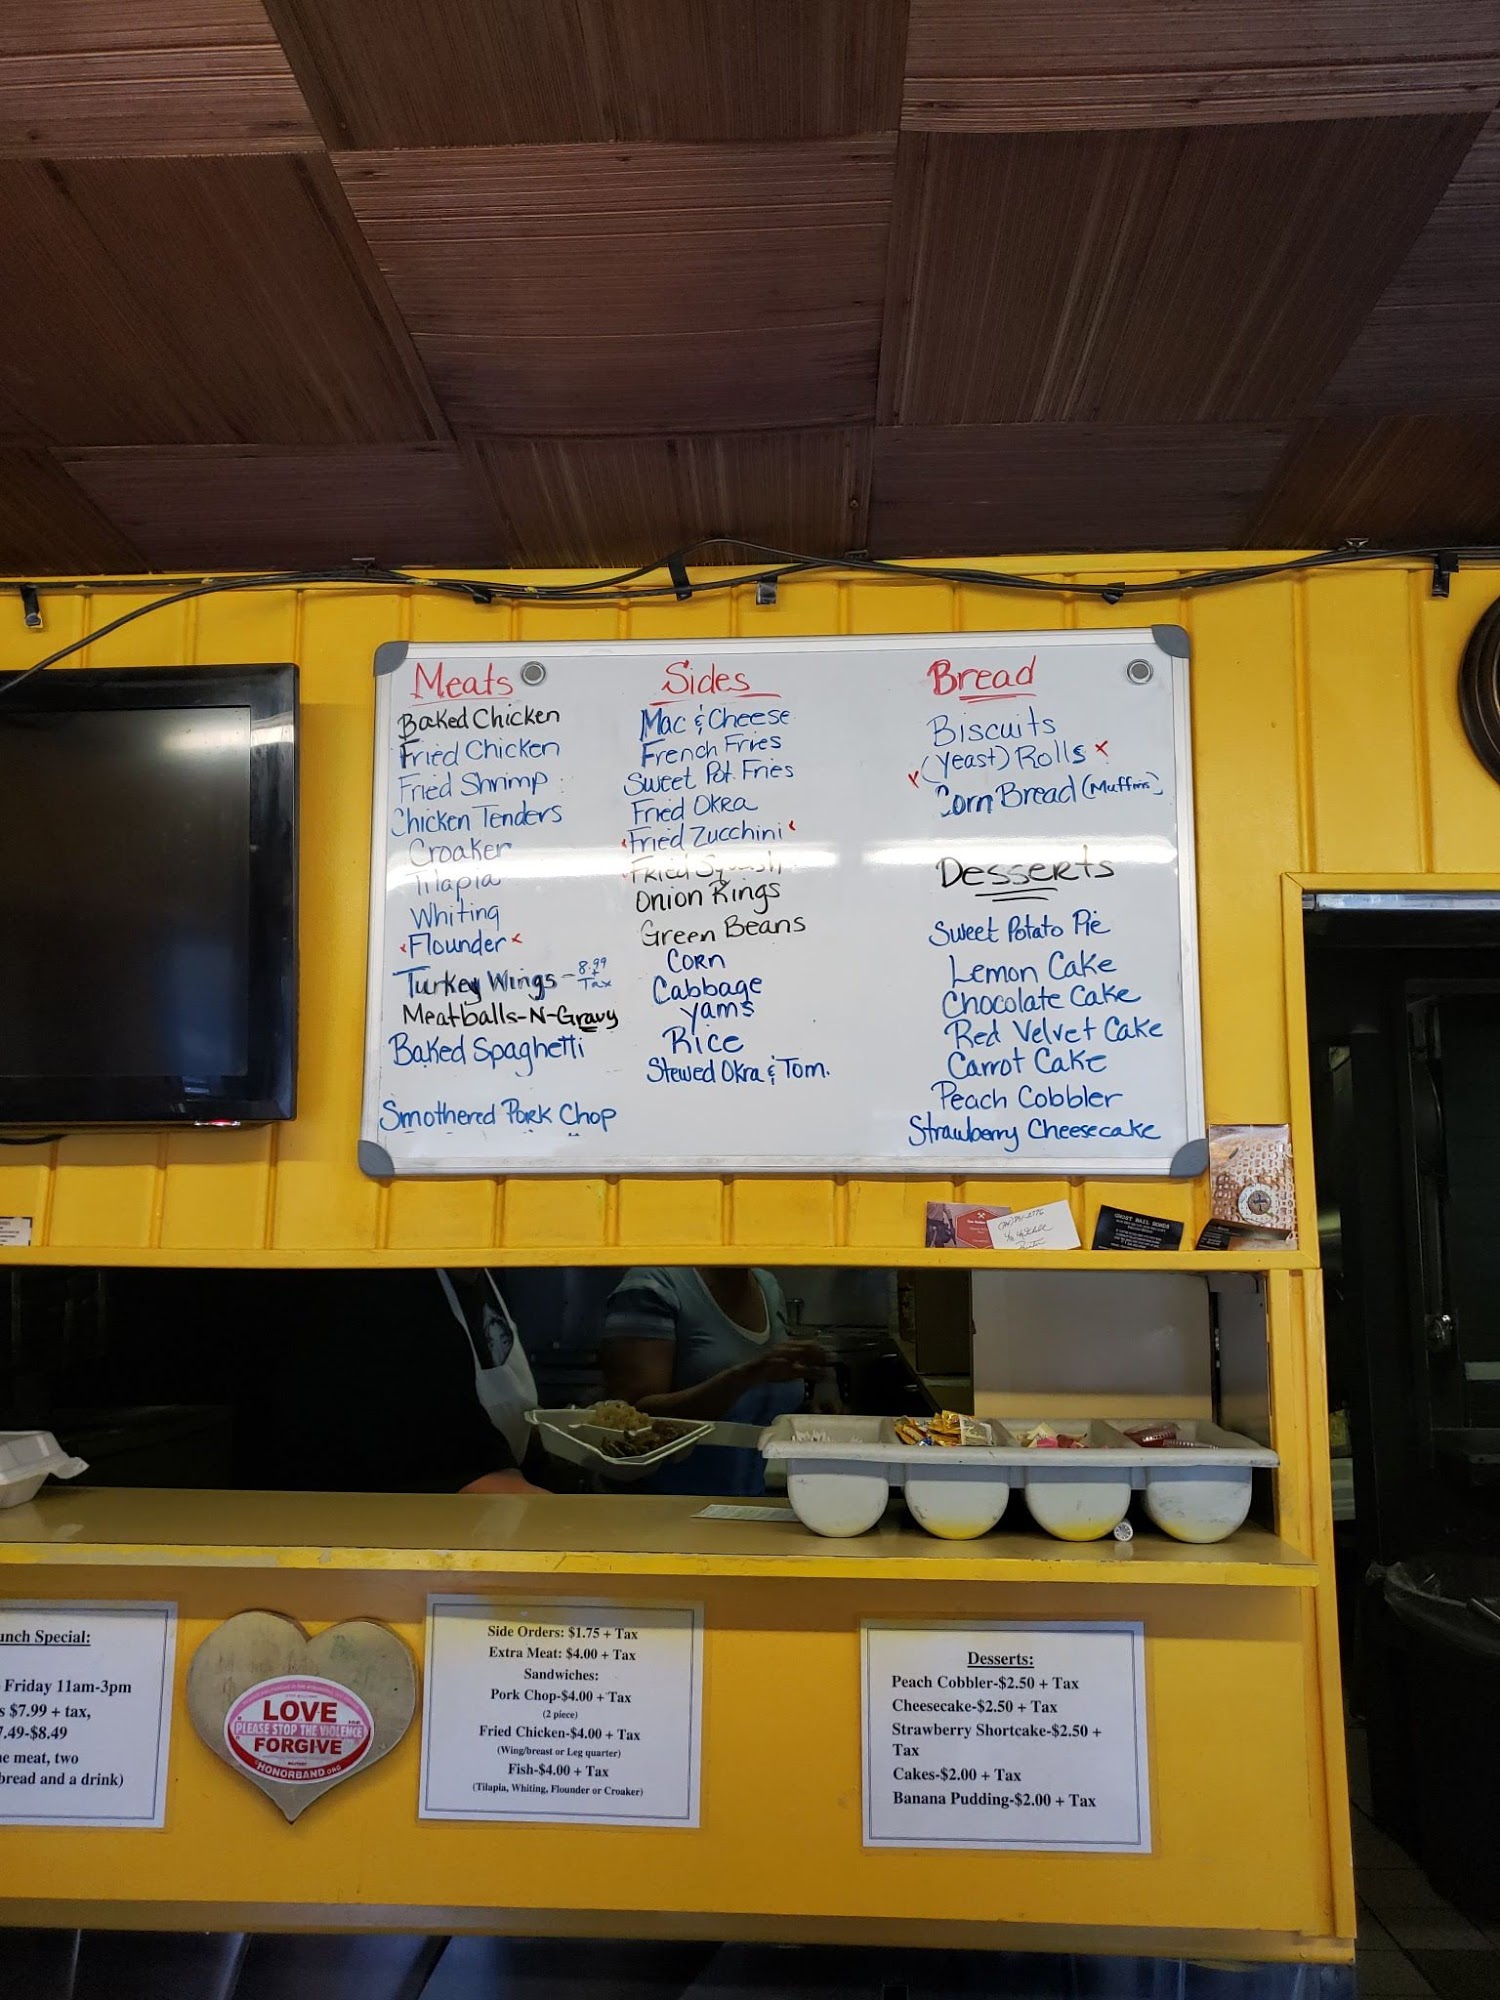 Meats
Baked Chicken
Fried Chicken
Fried Shrimp
Chicken Tenders
Croaker
Tilapia
Whiting
Flounder
Turkey Wings - 8.99 + Tax
Meatballs-N-Gravy
Baked Spaghetti
Smothered Pork Chop
Sides
Mac & Cheese
French Fries
Sweet Pot. Fries
Fried Okra
Fried Zucchini
Fried Squash
Onion Rings
Green Beans
Corn
Cabbage
Yams
Rice
Stewed Okra & Tom.
Bread
Biscuits
(Yeast) Rolls
Corn Bread (Muffins)
Desserts
Sweet Potato Pie
Lemon Cake
Chocolate Cake
Red Velvet Cake
Carrot Cake
Peach Cobbler
Strawberry Cheesecake
GHOST BAIL BONDS
unch Special:
Friday 11am-3pm
s $7.99 + tax,
7.49-$8.49
ne meat, two
bread and a drink)
LOVE
PLEASE STOP THE VIOLENCE
FORGIVE
HONORBAND.ORG
Side Orders: $1.75 + Tax
Extra Meat: $4.00 + Tax
Sandwiches:
Pork Chop-$4.00 + Tax
(2 piece)
Fried Chicken-$4.00 + Tax
(Wing/breast or Leg quarter)
Fish-$4.00 + Tax
(Tilapia, Whiting, Flounder or Croaker)
Desserts:
Peach Cobbler-$2.50 + Tax
Cheesecake-$2.50 + Tax
Strawberry Shortcake-$2.50 +
Tax
Cakes-$2.00 + Tax
Banana Pudding-$2.00 + Tax